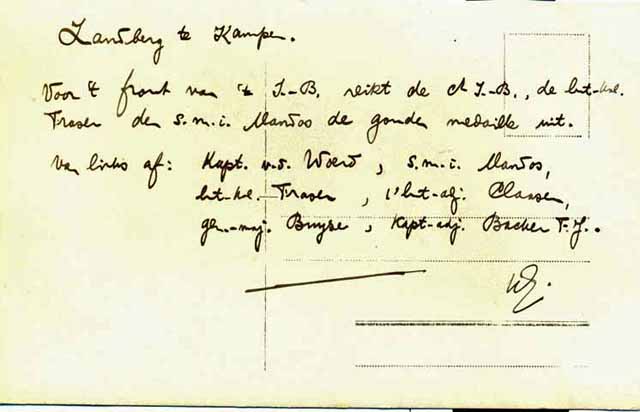 Zandberg te Kampen.
Voor 't front van 't I.-B. reikt de C I.-B., de lut-kol.
Fraser den s.m.i. Mandos de gouden medaille uit.
Van links af: Kapt. v.d. Woerd, s.m.i. Mandos,
lut-kol. Fraser, 1e lut-adj. Claasen,
gen.-maj. Buyse, Kapt-adj. Backer F.J..